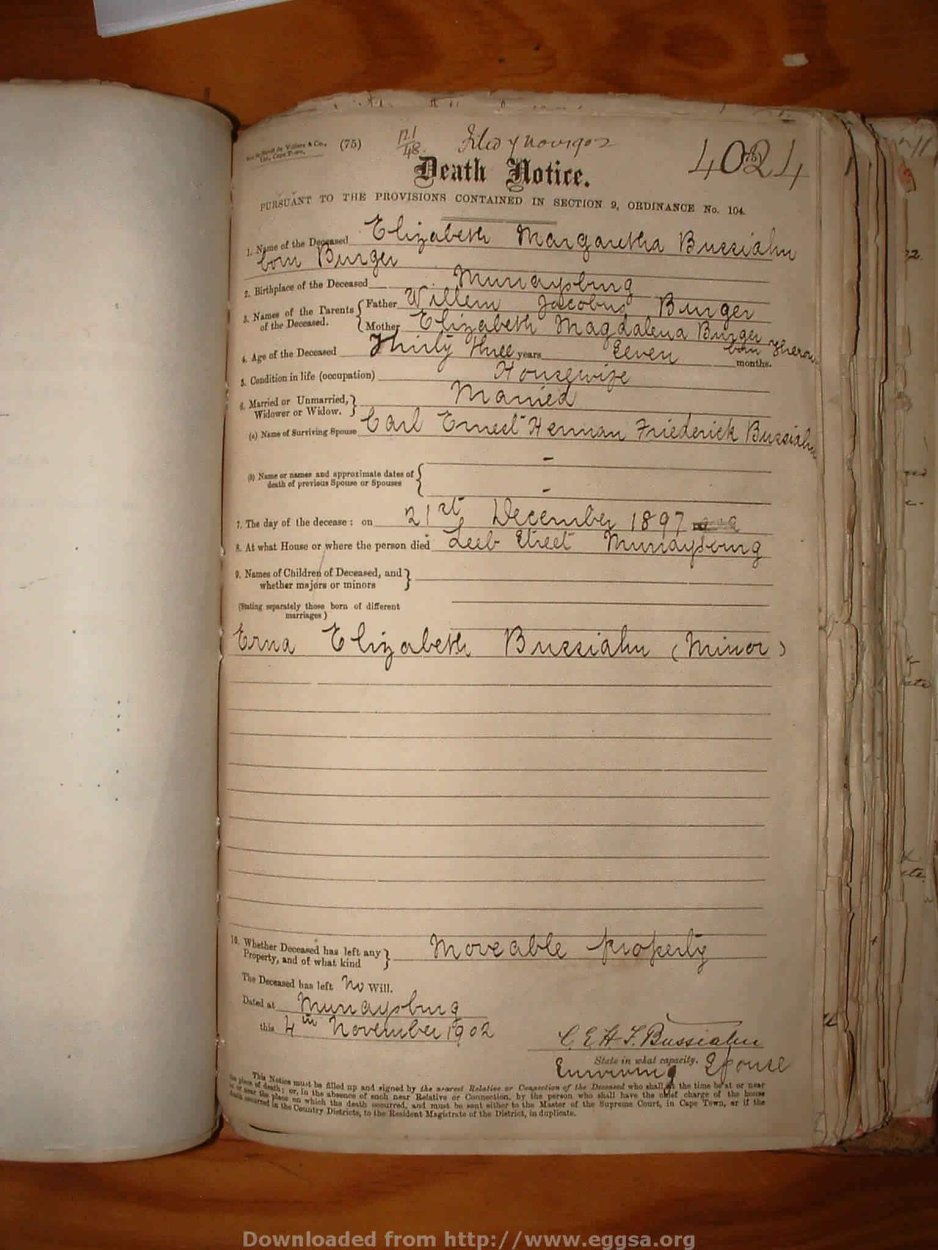 (75) 121/48 Filed 7 Nov 1902 4024
Death Notice.
PURSUANT TO THE PROVISIONS CONTAINED IN SECTION 9, ORDINANCE No. 104.
1. Name of the Deceased Elizabeth Margaretha Bussiahn
born Burger
2. Birthplace of the Deceased Murraysburg
3. Names of the Parents of the Deceased. Father Willem Jacobus Burger
Mother Elizabeth Magdalena Burger born
4. Age of the Deceased Thirty three years Eleven months.
5. Condition in life (occupation) Housewife
6. Married or Unmarried, Widower or Widow. Married
(a) Name of Surviving Spouse Carl Ernest Herman Friederick Bussiahn
(b) Name or names and approximate dates of death of previous Spouse or Spouses -
-
7. The day of the decease: on 21st December 1897
8. At what House or where the person died Leeb Street Murraysburg
9. Names of Children of Deceased, and whether majors or minors
(Stating separately those born of different marriages)
Erna Elizabeth Bussiahn (Minor)
10. Whether Deceased has left any Property, and of what kind Moveable property
The Deceased has left No Will.
Dated at Murraysburg
this 4th November 1902 C. E. H. F. Bussiahn
State in what capacity.
Surviving Spouse
This Notice must be filled up and signed by the nearest Relative or Connection of the Deceased who shall, at the time be at or near
the place of death; or, in the absence of such near Relative or Connection, by the person who shall have the chief charge of the house
in or near the place on which the death occurred, and must be sent either to the Master of the Supreme Court, in Cape Town, or if the
death occurred in the Country Districts, to the Resident Magistrate of the District, in duplicate.
Downloaded from http://www.eggsa.org